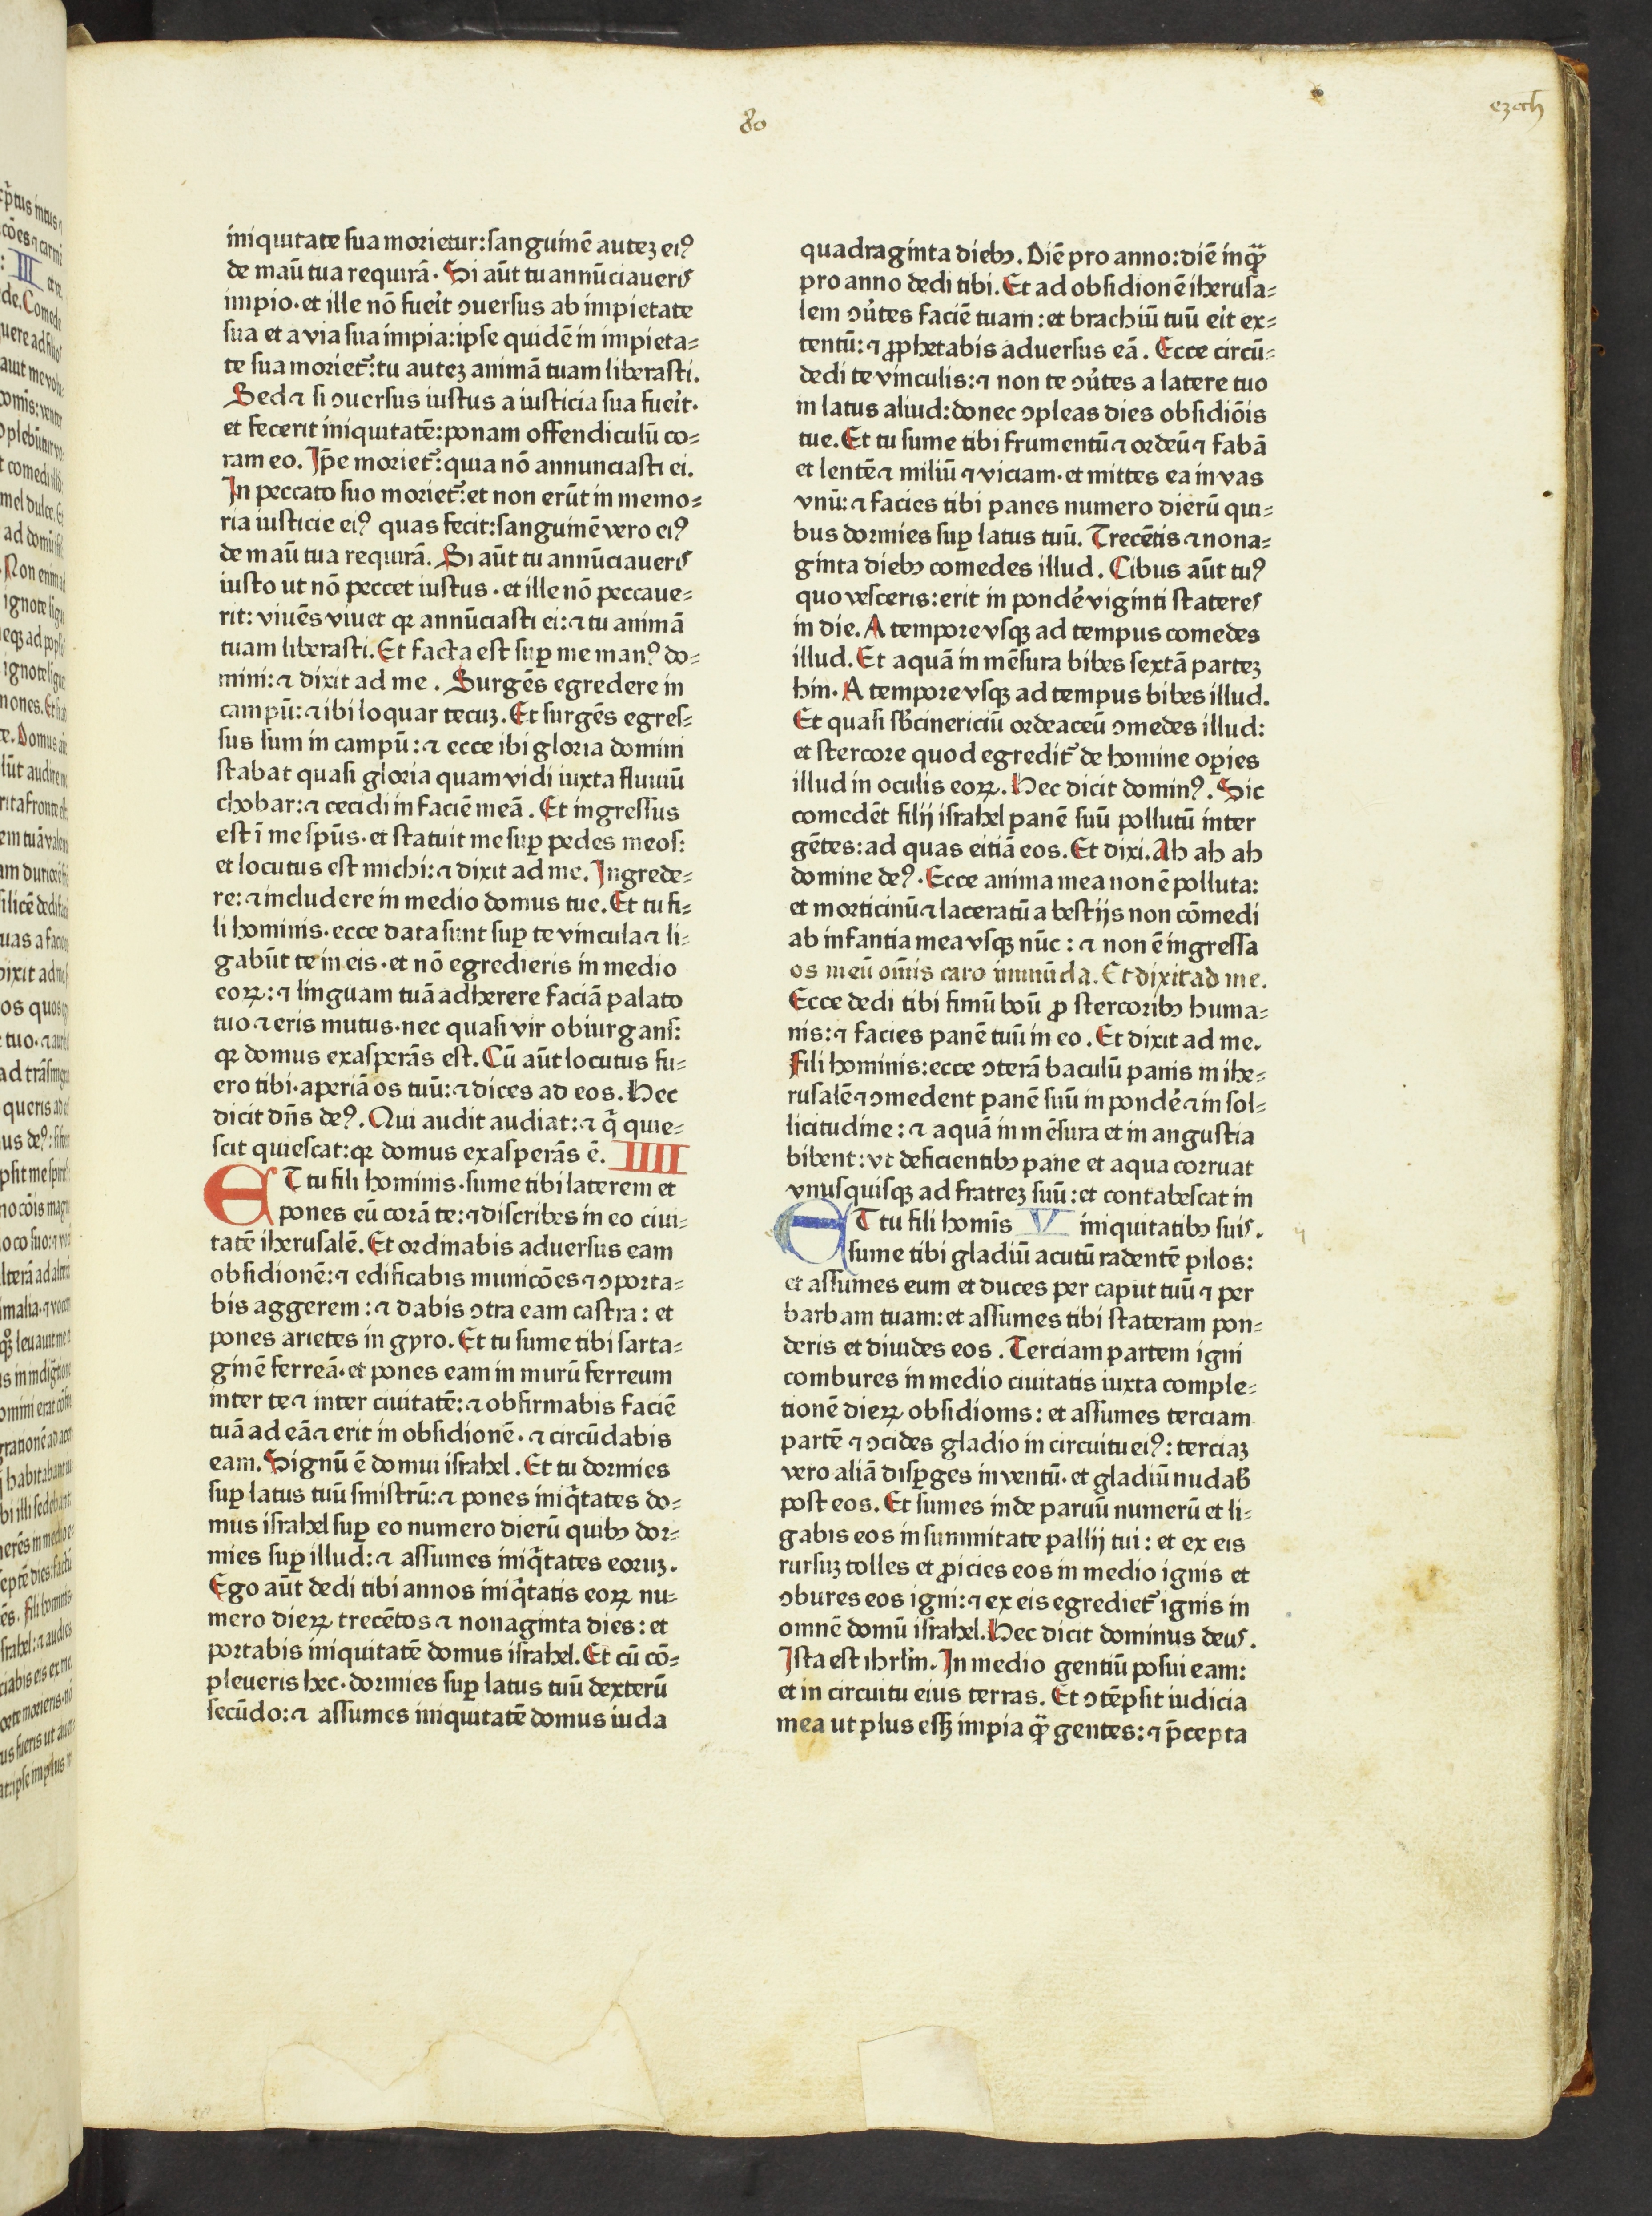 80
ezech
iniquitate sua morietur: sanguinē autez ei⁹
de maū tua requirā. Si aūt tu annūciaveris
impio. et ille nō fuerit ↄversus ab impietate
sua et a via sua impia: ipse quidē in impieta=
te sua moriet᷑: tu autez animā tuam liberasti.
Sed ⁊ si ↄversus iustus a iusticia sua fuerit.
et fecerit iniquitatē: ponam offendiculū co=
ram eo. Ip̄e moriet᷑: quia nō annunciasti ei.
In peccato suo moriet᷑: et non erūt in memo=
ria iusticie ei⁹ quas fecit: sanguinē vero ei⁹
de maū tua requirā. Si aūt tu annūciaveris
iusto ut nō peccet iustus. et ille nō peccave=
rit: vivēs vivet qꝛ annūciasti ei: ⁊ tu animā
tuam liberasti. Et facta est suꝑ me man⁹ do=
mini: ⁊ dixit ad me. Surgēs egredere in
campū: ⁊ ibi loquar tecuz. Et surgēs egres=
sus sum in campū: ⁊ ecce ibi gloria domini
stabat quasi gloria quam vidi iuxta fluviū
chobar: ⁊ cecidi in faciē meā. Et ingressus
est ī me spūs. et statuit me suꝑ pedes meos:
et locutus est michi: ⁊ dixit ad me. Ingrede=
re: ⁊ includere in medio domus tue. Et tu fi=
li hominis. ecce data sunt suꝑ te vincula ⁊ li=
gabūt te in eis. et nō egredieris in medio
eoꝝ: ⁊ linguam tuā adherere faciā palato
tuo ⁊ eris mutus. nec quasi vir obiurgans:
qꝛ domus exasperās est. Cū aūt locutus fu=
ero tibi. aperiā os tuū: ⁊ dices ad eos. Hec
dicit dn̄s de⁹. Qui audit audiat: ⁊ q̄ quie=
scit quiescat: qꝛ domus exasperās ē. IIII
ET tu fili hominis. sume tibi laterem et
pones eū corā te: ⁊ discribes in eo civi=
tatē iherusalē. Et ordinabis adversus eam
obsidionē: ⁊ edificabis municōes ⁊ ↄporta=
bis aggerem: ⁊ dabis ↄtra eam castra: et
pones arietes in gyro. Et tu sume tibi sarta=
ginē ferreā. et pones eam in murū ferreum
inter te ⁊ inter civitatē: ⁊ obfirmabis faciē
tuā ad eā ⁊ erit in obsidionē. ⁊ circūdabis
eam. Signū ē domui israhel. Et tu dormies
suꝑ latus tuū sinistrū: ⁊ pones iniq̄tates do=
mus israhel suꝑ eo numero dierū quibꝫ dor=
mies suꝑ illud: ⁊ assumes iniq̄tates eoruz.
Ego aūt dedi tibi annos iniq̄tatis eoꝝ nu=
mero dieꝝ trecētos ⁊ nonaginta dies: et
portabis iniquitatē domus israhel. Et cū cō=
pleveris hec. dormies suꝑ latus tuū dexterū
secūdo: ⁊ assumes iniquitatē domus iuda
quadraginta diebꝫ. Diē pro anno: diē inqᷓꝫ
pro anno dedi tibi. Et ad obsidionē iherusa=
lem ↄv̓tes faciē tuam: et brachiū tuū erit ex=
tentū: ⁊ ꝓphetabis adversus eā. Ecce circū=
dedi te vinculis: ⁊ non te ↄv̓tes a latere tuo
in latus aliud: donec ↄpleas dies obsidiōis
tue. Et tu sume tibi frumentū ⁊ ordeū ⁊ fabā
et lentē ⁊ miliū ⁊ viciam. et mittes ea in vas
vnū: ⁊ facies tibi panes numero dierū qui=
bus dormies suꝑ latus tuū. Trecētis ⁊ nona=
ginta diebꝫ comedes illud. Cibus aūt tu⁹
quo vesceris: erit in pondē viginti stateres
in die. A tempore vsqꝫ ad tempus comedes
illud. Et aquā in mēsura bibes sextā partez
hin. A tempore vsqꝫ ad tempus bibes illud.
Et quasi sb̄cinericiū ordeaceū ↄmedes illud:
et stercore quod egredit᷑ de homine oꝑies
illud in oculis eoꝝ. Hec dicit domin⁹. Sic
comedēt filij israhel panē suū pollutū inter
gētes: ad quas eiciā eos. Et dixi. Ah ah ah
domine de⁹. Ecce anima mea non ē polluta:
et morticinū ⁊ laceratū a bestijs non cōmedi
ab infantia mea vsqꝫ nūc: ⁊ non ē ingressa
os meū om̄is caro inmūda. Et dixit ad me.
Ecce dedi tibi fimū boū ꝓ stercoribꝫ huma=
nis: ⁊ facies panē tuū in eo. Et dixit ad me.
Fili hominis: ecce ↄterā baculū panis in ihe=
rusalē ⁊ ↄmedent panē suū in pondē ⁊ in sol=
licitudine: ⁊ aquā in mēsura et in angustia
bibent: vt deficientibꝫ pane et aqua corruat
vnusquisqꝫ ad fratrez suū: et contabescat in
ET tu fili homīs V iniquitatibꝫ suis.
sume tibi gladiū acutū radentē pilos:
et assumes eum et duces per caput tuū ⁊ per
barbam tuam: et assumes tibi stateram pon=
deris et divides eos. Terciam partem igni
combures in medio civitatis iuxta comple=
tionē dieꝝ obsidionis: et assumes terciam
partē ⁊ ↄcides gladio in circuitu ei⁹: terciaz
vero aliā disꝑges in ventū. et gladiū nudab̄
post eos. Et sumes inde parvū numerū et li=
gabis eos in summitate pallij tui: et ex eis
rursuz tolles et ꝓicies eos in medio ignis et
ↄbures eos igni: ⁊ ex eis egrediet᷑ ignis in
omnē domū israhel. Hec dicit dominus deus.
Ista est ihrl̄m. In medio gentiū posui eam:
et in circuitu eius terras. Et ↄtēpsit iudicia
mea ut plus essꝫ impia qᷓꝫ gentes: ⁊ p̄cepta